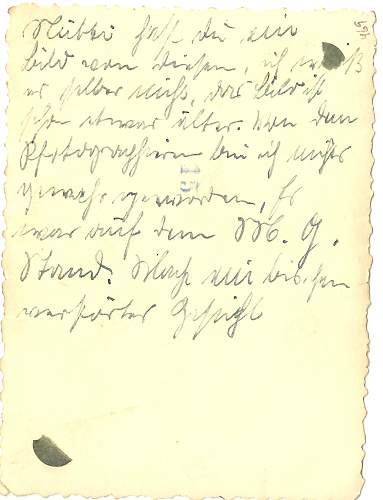 hast du ein
Bild von diesem, ich weiß
es selber nicht, das Bild ist
schon etwas älter. Von dem
Photographieren bin ich nichts
gewahr geworden, Es
war auf dem M. G.
Stand. Mach ein bischen
verstörtes Gesicht
15